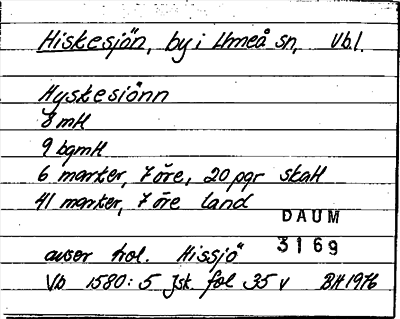 Hiskesjön, by i Umeå sn, Vb.l.
Hyskesiönn
8 mtl
9 bgmtl
6 marker, 7 öre, 20 pgr skatt
41 marker, 7 öre land
DAUM
3169
avser trol. Hissjö
Vb 1580: 5 Jsk. fol 35 v BH 1976